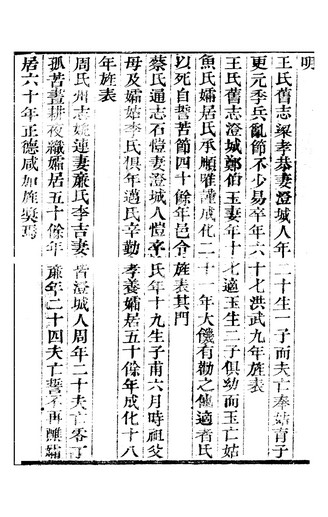 明
王氏舊志梁孝恭妻澄城人年二十生一子而夫亡奉姑育子
更元季兵亂節不少易卒年六十七洪武九年旌表
王氏舊志澄城鄭伯玉妻年十七適玉生二子俱幼而玉亡姑
魚氏孀居氏承順雖謹成化二十一年大饑有勸之他適者氏
以死自誓苦節四十餘年邑令旌表其門
蔡氏通志石愷妻澄城人愷卒氏年十九生子甫六月時祖父
母及孀姑李氏俱年邁氏辛勤孝養孀居五十餘年成化十八
年旌表
周氏州志姚連妻薕氏李吉妻皆澄城人周年二十夫亡零丁
孤苦晝耕夜織孀居五十餘年薕年二十四夫亡誓不再醮孀
居六十年正德咸加旌奬焉